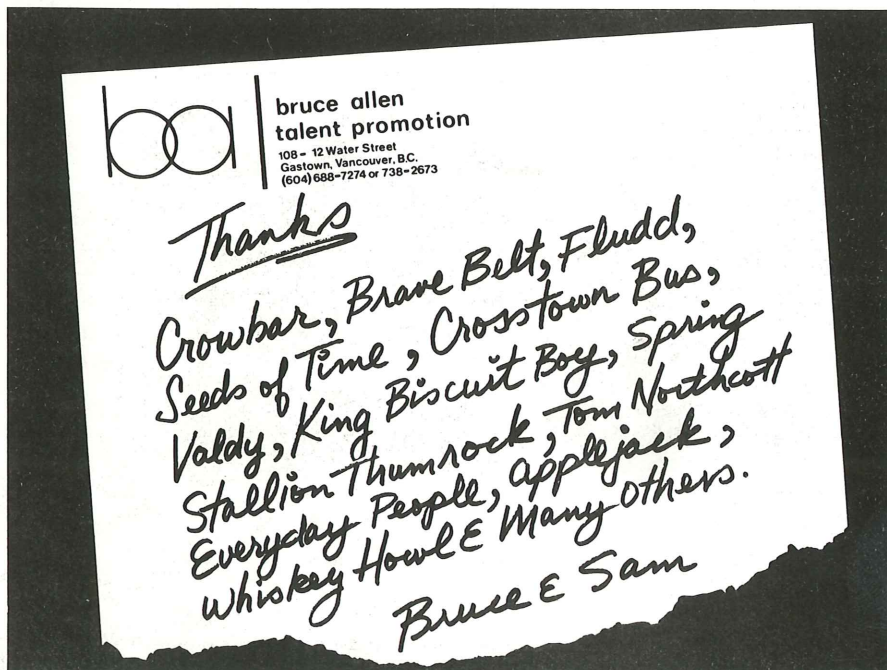 ba
bruce allen
talent promotion
108- 12 Water Street
Gastown, Vancouver, B.C.
(604) 688-7274 or 738-2673
Thanks
Crowbar, Brave Belt, Fludd,
Seeds of Time, Crosstown Bus,
Valdy, King Biscuit Boy, Spring
Stallion Thumrock, Tom Northcott
Everyday People, applejack,
Whiskey Howl & Many Others.
Bruce & Sam